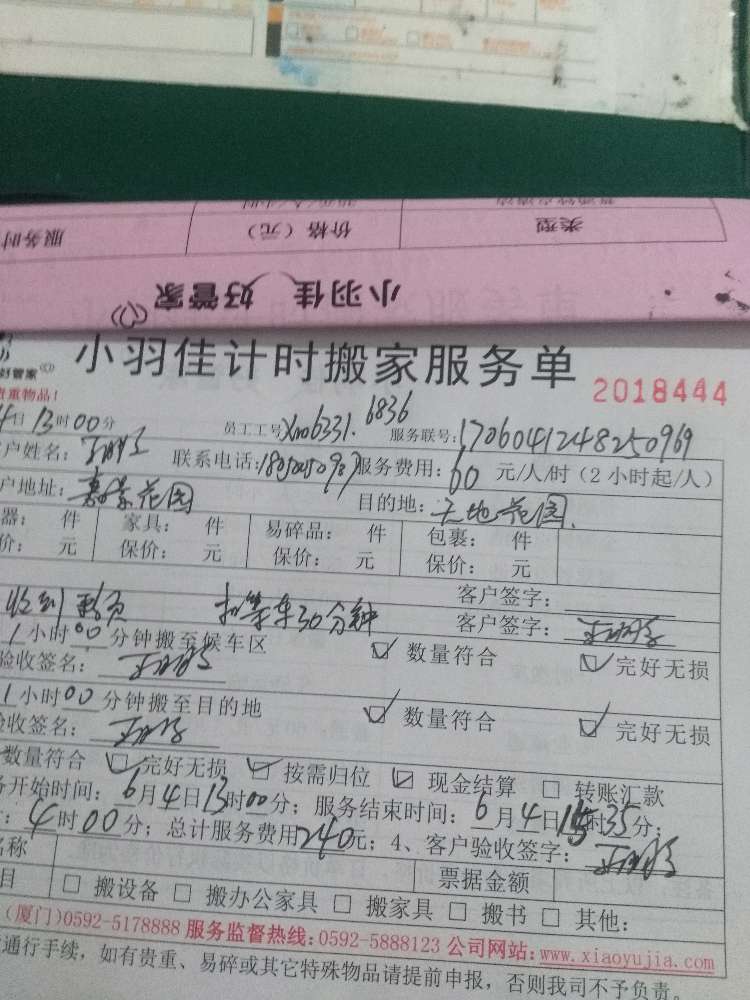 服务时
价格（元）
类型
小羽佳 好管家
好管家
小羽佳计时搬家服务单
2018444
贵重物品！
4日13时00分 员工工号 6836 服务联号:1706041248250969
户姓名: 联系电话: 服务费用: 60 元/人/时（2小时起/人）
户地址: 花园 目的地: 天地花园
器: 件 家具: 件 易碎品: 件 包裹: 件
价: 元 保价: 元 保价: 元 保价: 元
客户签字:
收到 扣等车30分钟 客户签字:
1小时00分钟搬至候车区 ☑ 数量符合 ☑ 完好无损
验收签名:
1小时00分钟搬至目的地 ☑ 数量符合 ☑ 完好无损
收签名:
数量符合 ☑ 完好无损 ☑ 按需归位 ☑ 现金结算 □ 转账汇款
务开始时间: 6月4日13时00分; 服务结束时间: 6月4日 时35分;
: 4时00分; 总计服务费用240元; 4、客户验收签字:
名称 票据金额
目 □ 搬设备 □ 搬办公家具 □ 搬家具 □ 搬书 □ 其他:
（厦门)0592-5178888 服务监督热线:0592-5888123 公司网站:www.xiaoyujia.com
通行手续，如有贵重、易碎或其它特殊物品请提前申报，否则我司不予负责。